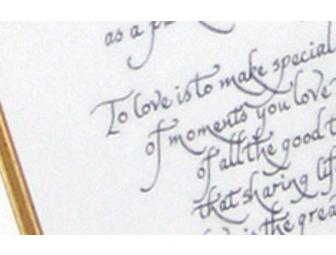 as a
To love is to make special
of moments you love
of all the good
that sharing
is the